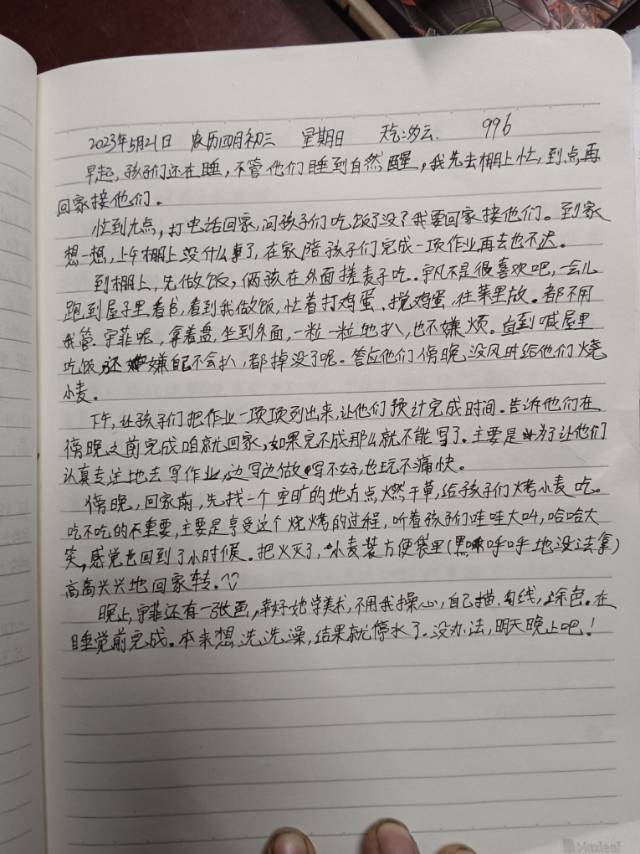 2023年5月21日 农历四月初三 星期日 天气:多云. 996
早起,孩子们还在睡,不管他们睡到自然醒,我先去棚上忙,到点再
回家接他们。
忙到九点,打电话回家,问孩子们吃饭了没?我要回家接他们。到家
想一想,上午棚上没什么事了,在家陪孩子们完成一项作业再去也不迟。
到棚上,先做饭,俩孩在外面搓麦子吃。宇凡不是很喜欢吧,一会儿
跑到屋子里看书,看到我做饭,忙着打鸡蛋、搅鸡蛋,往菜里放。都不用
我管。宇菲呢,拿着盘,坐到外面,一粒一粒地扒,也不嫌烦。直到喊屋里
吃饭,还嫌自己不会扒,都掉没了呢。答应他们傍晚没风时给他们烧
小麦。
下午,让孩子们把作业一项项列出来,让他们预计完成时间。告诉他们在
傍晚之前完成咱就回家,如果完不成那么就不能写了。主要是为了让他们
认真专注地去写作业,边写边做写不好,也玩不痛快。
傍晚,回家前,先找一个空旷的地方点燃干草,给孩子们烤小麦吃。
吃不吃的不重要,主要是享受这个烧烤的过程,听着孩子们哇哇大叫,哈哈大
笑,感觉也回到了小时候。把火灭了,小麦装方便袋里(黑呼呼地没法拿)
高高兴兴地回家转。
晚上,宇菲还有一张画,幸好她学美术,不用我操心,自己描、勾线,涂色。在
睡觉前完成。本来想洗洗澡,结果就停水了。没办法,明天晚上吧!
Maxleaf